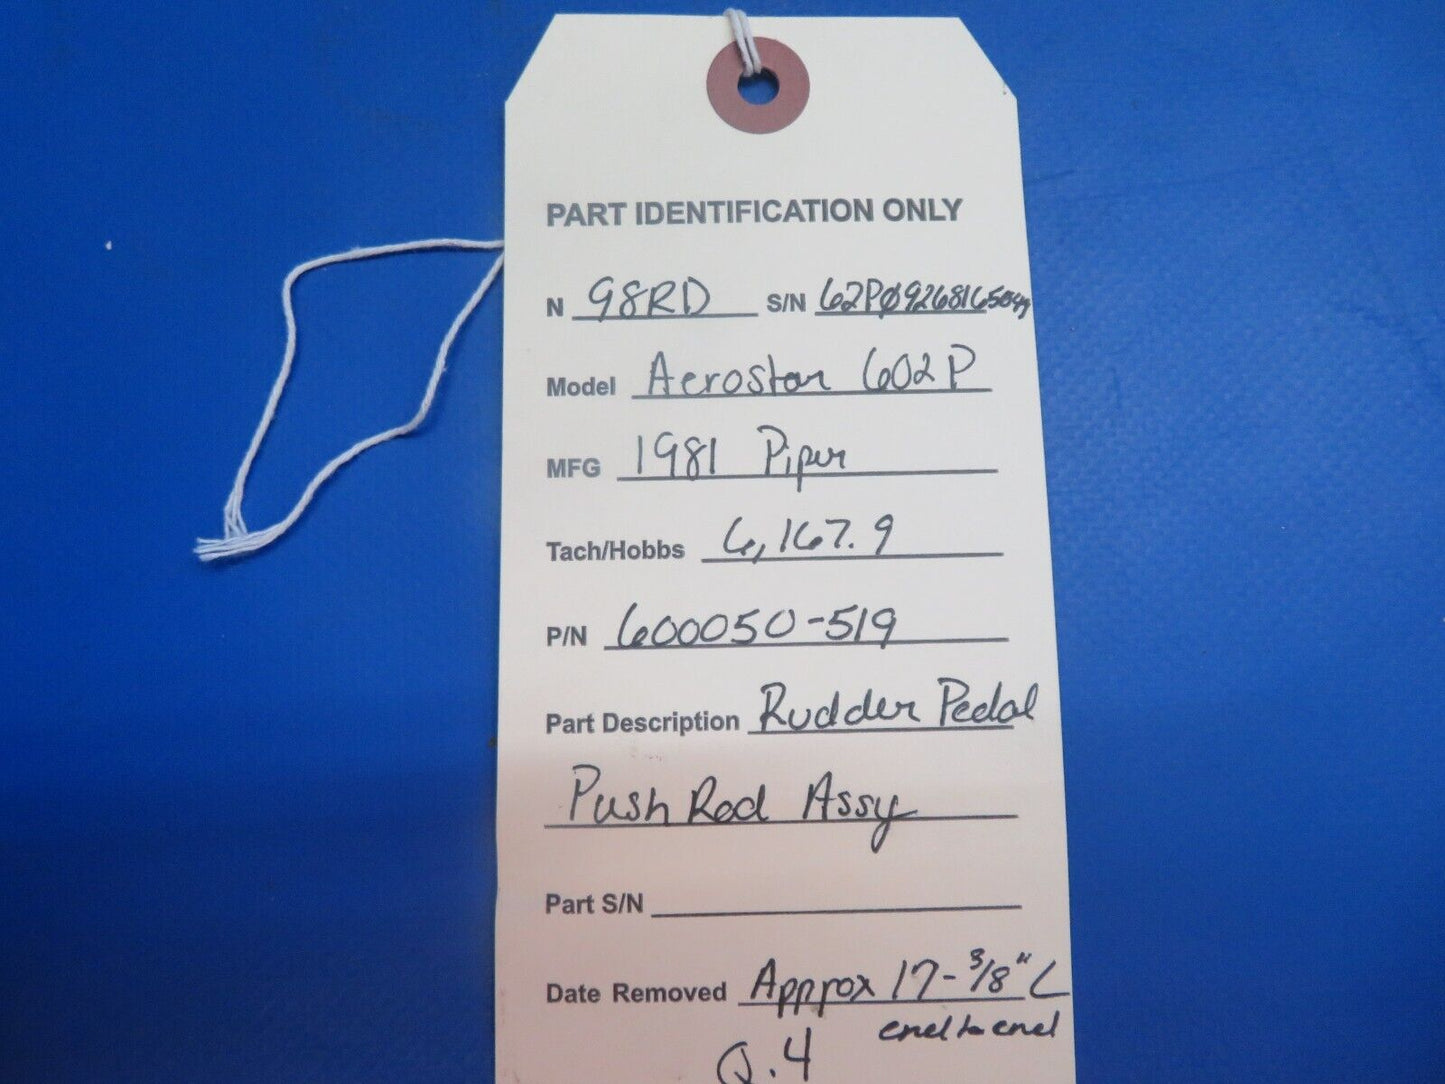 PART IDENTIFICATION ONLY
N 98RD S/N 62PØ9268165049
Model Aerostar 602P
MFG 1981 Piper
Tach/Hobbs 6,167.9
P/N 600050-519
Part Description Rudder Pedal
Push Rod Assy
Part S/N
Date Removed Approx 17-3/8" L
end to end
Q.4